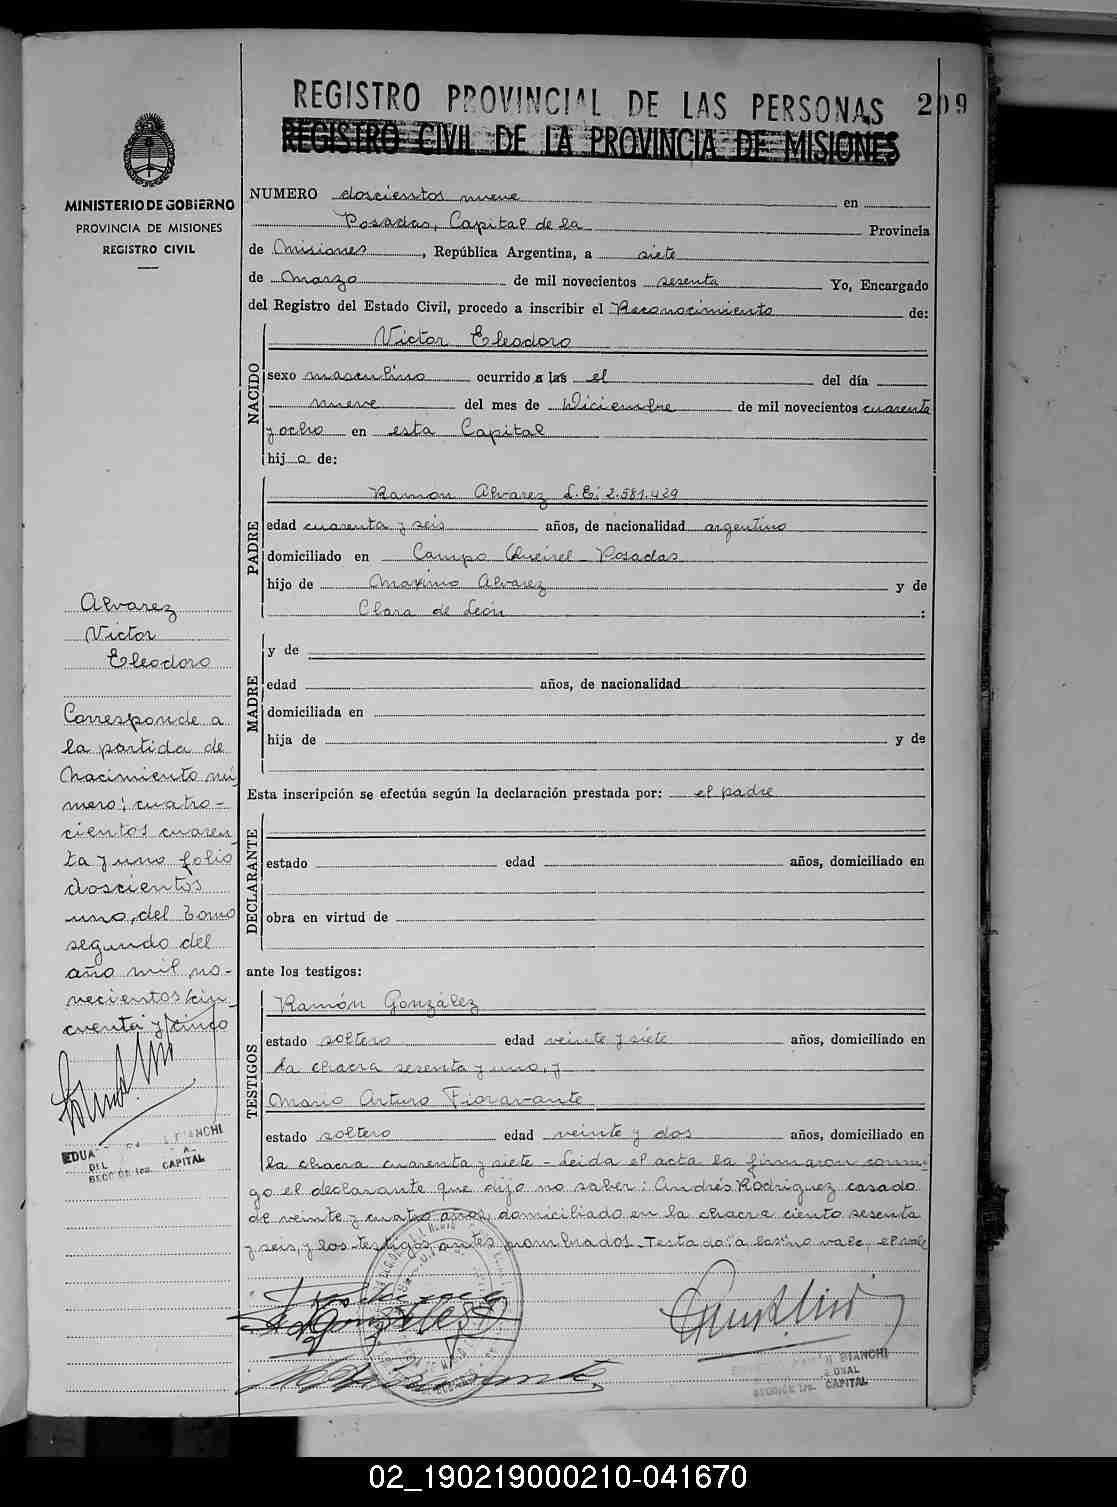 REGISTRO PROVINCIAL DE LAS PERSONAS 209
REGISTRO CIVIL DE LA PROVINCIA DE MISIONES
MINISTERIO DE GOBIERNO
PROVINCIA DE MISIONES
REGISTRO CIVIL
NUMERO doscientos nueve en
Posadas, Capital de la Provincia
de Misiones, República Argentina, a siete
de Marzo de mil novecientos sesenta Yo, Encargado
del Registro del Estado Civil, procedo a inscribir el Reconocimiento de:
NACIDO
Victor Eleodoro
sexo masculino ocurrido a las el del día
nueve del mes de Diciembre de mil novecientos cuarenta
y ocho en esta Capital
hij o de:
PADRE
Ramon Alvarez L.E: 2.581.429
edad cuarenta y seis años, de nacionalidad argentino
domiciliado en Campo Queirel Posadas
hijo de Maximo Alvarez y de
Clara de León :
MADRE
y de
edad años, de nacionalidad
domiciliada en
hija de y de
Esta inscripción se efectúa según la declaración prestada por: el padre
DECLARANTE
estado edad años, domiciliado en
obra en virtud de
ante los testigos:
TESTIGOS
Ramón González
estado soltero edad veinte y siete años, domiciliado en
la chacra sesenta y uno, y
Mario Arturo Fioravante
estado soltero edad veinte y dos años, domiciliado en
la chacra cuarenta y siete - Leida el acta la firmaron conmi-
go el declarante que dijo no saber: Andrés Rodriguez casado
de veinte y cuatro años, domiciliado en la chacra ciento sesenta
y seis, y los testigos antes nombrados. Testado: a las: no vale, el vale
Alvarez
Victor
Eleodoro
Corresponde a
la partida de
Nacimiento nú
mero: cuatro-
cientos cuaren
ta y uno folio
doscientos
uno, del Tomo
segundo del
año mil no-
vecientos cin
cuenta y cinco
BIANCHI
DEL
SECCION 1ra. CAPITAL
BIANCHI
SECCION 1ra. CAPITAL
02_190219000210-041670